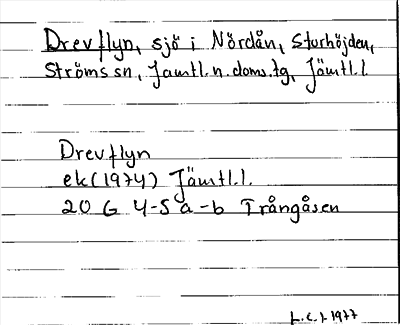 Drevflyn, sjö i Nördån, Sturhöjden,
Ströms sn, Jämtl. n. doms. tg, Jämtl. l.
Drevflyn
ek (1974) Jämtl. l.
20 G 4-5 a-b Trångåsen
1977